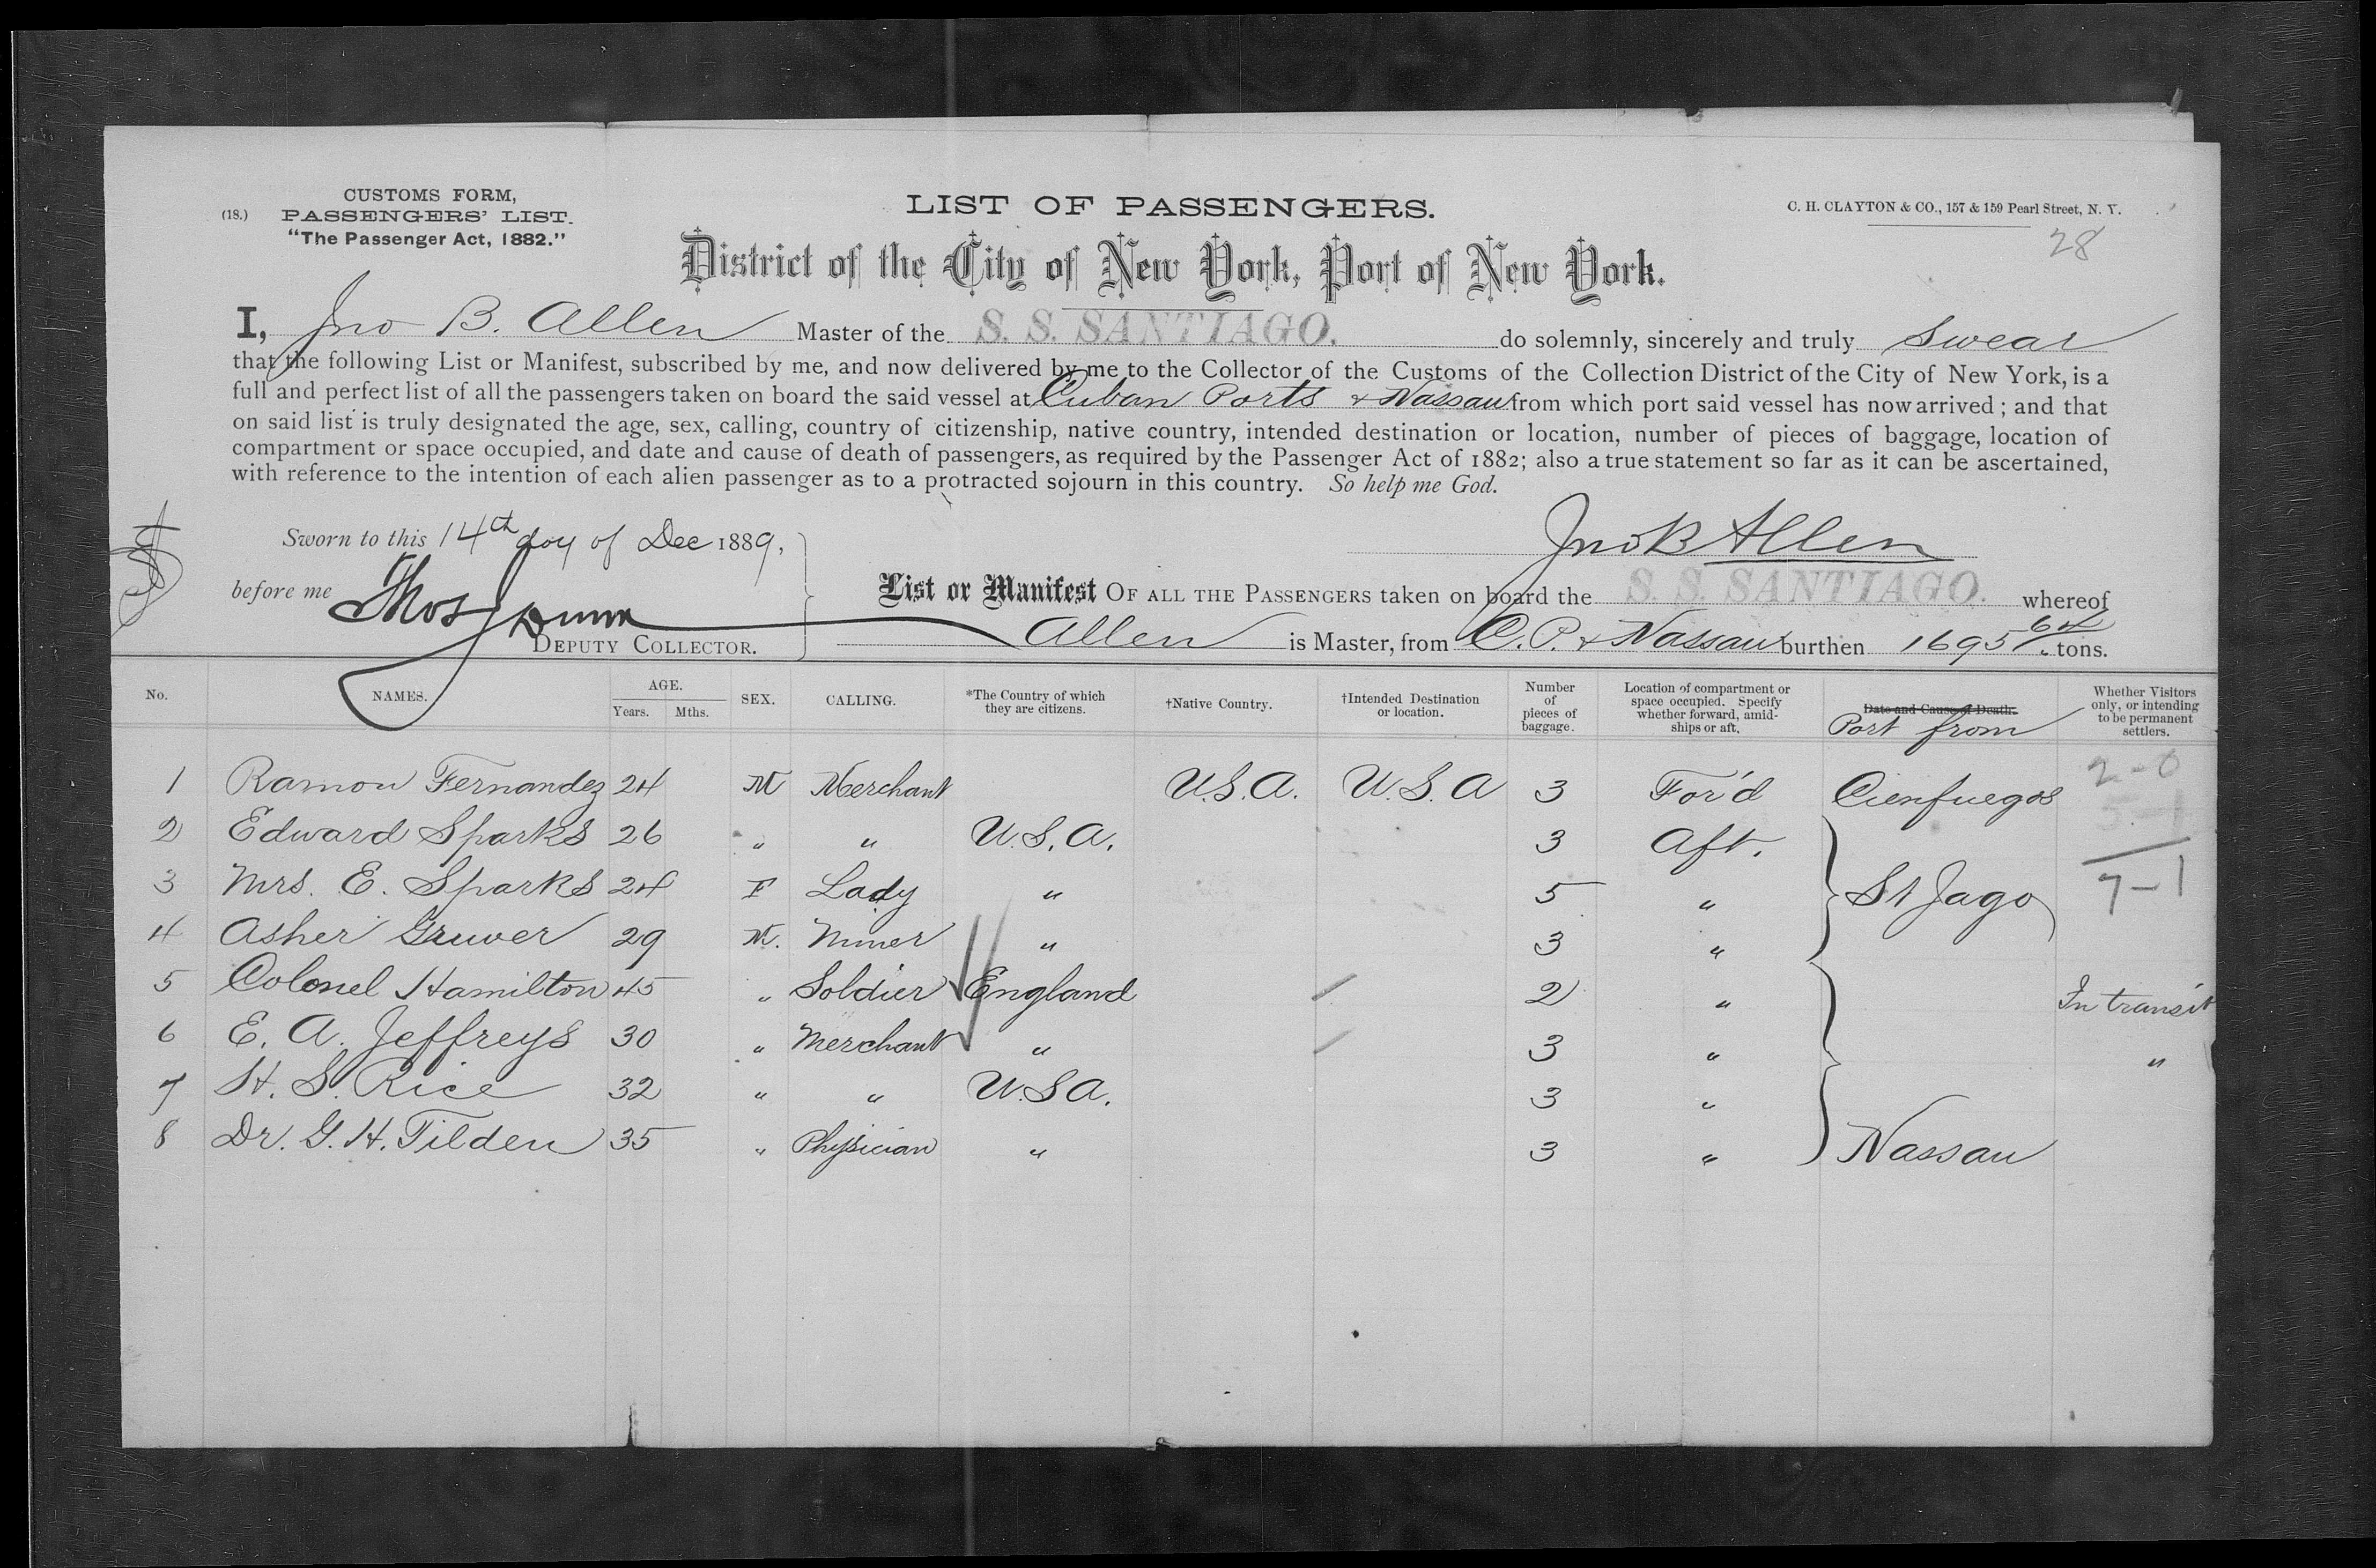 CUSTOMS FORM,
(18.) PASSENGERS' LIST.
"The Passenger Act, 1882."
LIST OF PASSENGERS.
C. H. CLAYTON & CO., 157 & 159 Pearl Street, N. Y.
28
District of the City of New York, Port of New York.
I, Jno B. Allen Master of the S. S. SANTIAGO. do solemnly, sincerely and truly swear
that the following List or Manifest, subscribed by me, and now delivered by me to the Collector of the Customs of the Collection District of the City of New York, is a
full and perfect list of all the passengers taken on board the said vessel at Cuban Ports & Nassau from which port said vessel has now arrived; and that
on said list is truly designated the age, sex, calling, country of citizenship, native country, intended destination or location, number of pieces of baggage, location of
compartment or space occupied, and date and cause of death of passengers, as required by the Passenger Act of 1882; also a true statement so far as it can be ascertained,
with reference to the intention of each alien passenger as to a protracted sojourn in this country. So help me God.
Sworn to this 14th day of Dec 1889,
Jno B Allen
before me Thos J Dunn
DEPUTY COLLECTOR.
List or Manifest OF ALL THE PASSENGERS taken on board the S. S. SANTIAGO. whereof
Allen is Master, from C. P. & Nassau burthen 1695 64 tons.
No. NAMES. AGE. Years. Mths. SEX. CALLING. *The Country of which they are citizens. †Native Country. †Intended Destination or location. Number of pieces of baggage. Location of compartment or space occupied. Specify whether forward, amidships or aft. Date and Cause of Death. Port from Whether Visitors only, or intending to be permanent settlers.
1 Ramon Fernandez 24 M Merchant U.S.A. U.S.A 3 For'd Cienfuegos 2-0
2 Edward Sparks 26 " " U.S.A. 3 Aft. 5-1
3 Mrs. E. Sparks 24 F Lady " 5 " St Jago 7-1
4 Asher Gruver 29 M. Miner " 3 "
5 Colonel Hamilton 45 " Soldier England 2 " In transit
6 E. A. Jeffreys 30 " Merchant " 3 " "
7 H. S. Rice 32 " " U.S.A. 3 "
8 Dr. G. H. Tilden 35 " Physician " 3 " Nassau